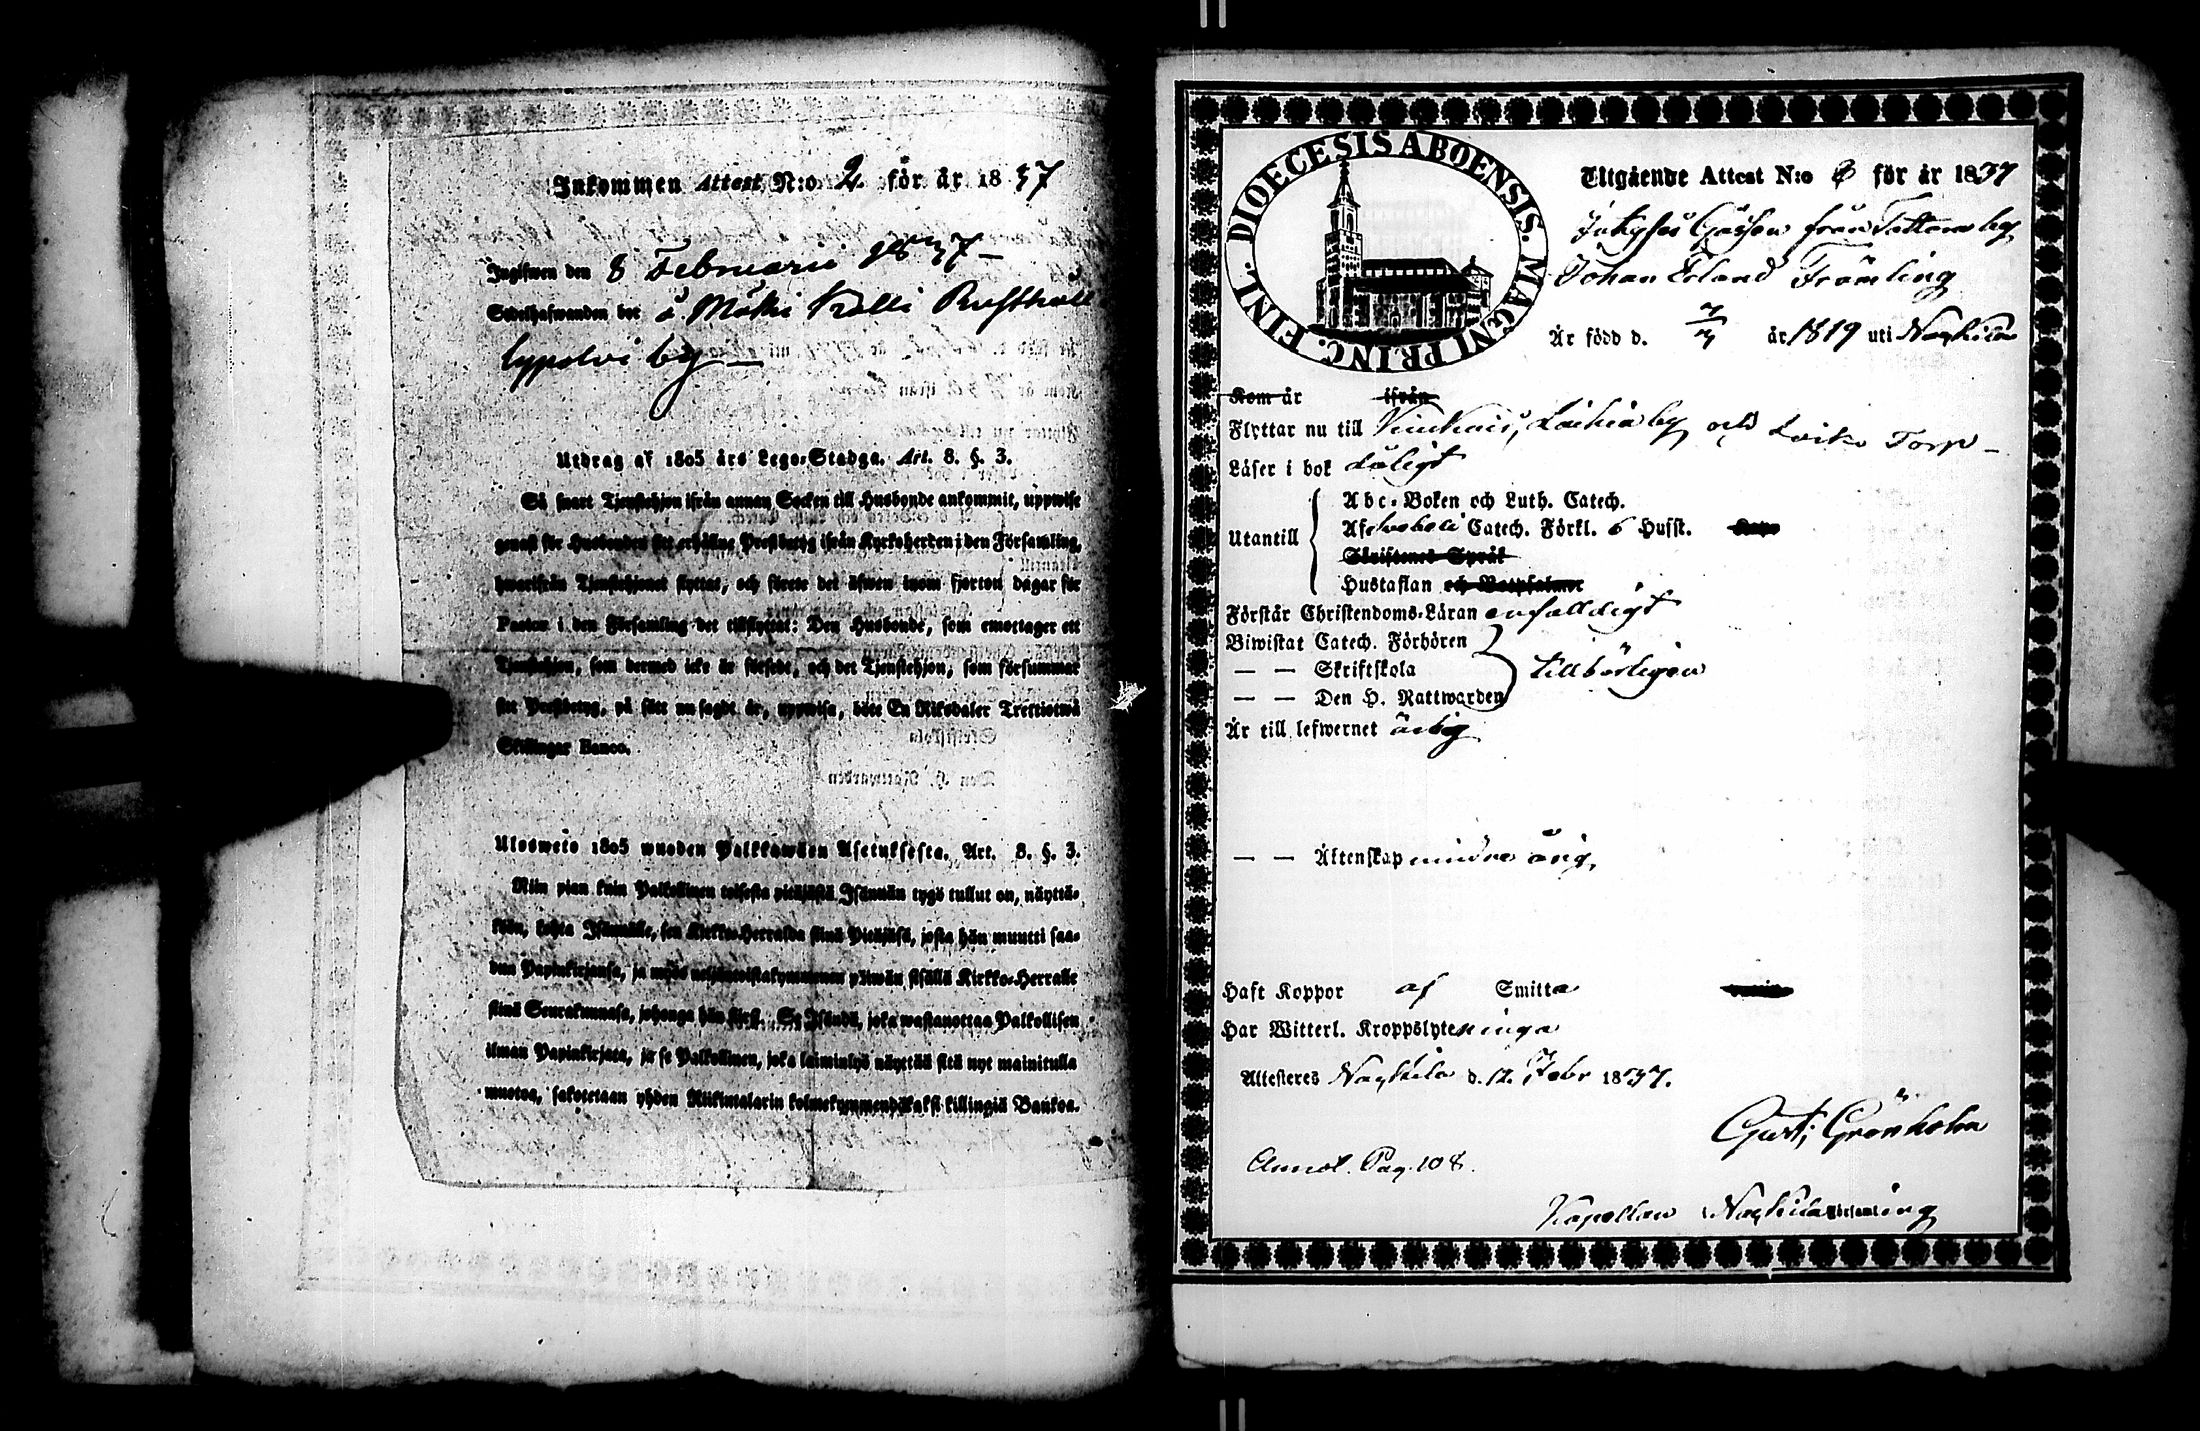 Inkommen Attest N:o 2 för år 1837
Ingifwen den 8 Februarii 1837 –
Sedelhafwanden bor å Mälki Kalli Rusthåll
by –
Utdrag af 1805 års Lego-Stadga. Art. 8. §. 3.
Så snart Tjenstehjon ifrån annan Socken till Husbonde ankommit, uppwise
genast för Husbonden sitt erhållne Prestbetyg ifrån Kyrkoherden i den Församling,
hwarifrån Tjenstehjonet flyttat, och förete det äfwen inom fjorton dagar för
Pastor i den Församling det tillflyttat: Den Husbonde, som emottager ett
Tjenstehjon, som dermed icke är försedt, och det Tjenstehjon, som försummar
sitt Prestbetyg, på sätt nu sagdt är, uppwisa, böte En Riksdaler Trettiotwå
Skillingar Banco.
Ulosweto 1805 wuoden Palkkawäen Asetuksesta. Art. 8. §. 3.
Niin pian kuin Palkollinen toisesta pitäjästä Isännän tygö tullut on, näyttä-
kään, kohta Isännälle, sen Kirkko-Herralda siinä Pitäjäsä, josta hän muutti saa-
dun Papinkirjansa, ja myös neljäntoistakymmenen päiwän sisällä Kirkko-Herralle
siinä Seurakunnasa, johonga hän siirsi. Se Isändä, joka wastanottaa Palkollisen
ilman Papinkirjata, ja se Palkollinen, joka laiminlyö näyttää sitä nyt mainitulla
muotoa, sakotetaan yhden Riikintalarin kolmekymmendäkaksi killingiä Bankoa.
DIOECESIS ABOENSIS. MAGNI PRINC. FINL.
Utgående Attest N:o 3 för år 1837
från by
Johan Erland Främling
Är född d. 7/7 år 1819 uti Nagkila
Kom år ifrån
Flyttar nu till by och Torp –
Läser i bok dåligt
Utantill
Abc-Boken och Luth. Catech.
Af Svebelii Catech. Förkl. 6 Hufst.
Skriftenes Språk
Hustaflan
Förstår Christendoms-Läran enfalldigt
Biwistat Catech. Förhören
— — Skriftskola tillbörligen
— — Den H. Nattwarden
Är till lefwernet ärlig
— — Äktenskap mindre årig.
Haft Koppor af Smitta
Har Witterl. Kroppslyten inga
Attesteras Nagkila d. 12. Febr 1837.
Gust: Grönholm
Annot. Pag. 108.
Kapellan i Nagkila Församling